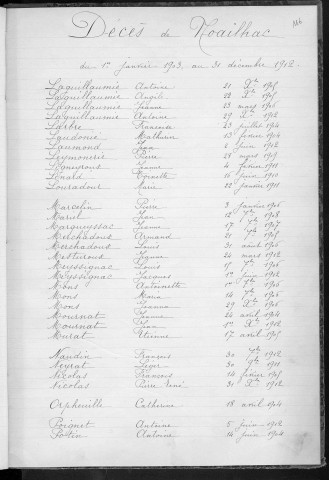 Décès de Noailhac
du 1er janvier 1903 au 31 décembre 1912
Laguillaumie Antoine 21 Xbre 1905
Laguillaumie Angèle 22 Xbre 1905
Laguillaumie Jeanne 23 mars 1906
Laguillaumie Antoine 29 Xbre 1912
Larbre Françoise 23 juillet 1904
Laudonie Mathurin 13 février 1904
Laumond Jean 2 juin 1912
Leymonerie Pierre 28 mars 1909
Leyneyroux Jeanne 4 février 1911
Lénard Toinette 16 juin 1910
Louradour Marie 22 janvier 1911
Marcelin Pierre 3 janvier 1906
Marel Jean 1908
Margueyssac Jeanne 17 1907
Merchadous Armand 21
Merchadous Louis 31 août 1906
Mesturoux Agnac 24 mars 1912
Meyssignac Louis 15 1906
Meyssignac Jacques 1er juin 1912
Mons Antoinette 1906
Mons Maria 14 1906
Mons Jeanne 29 Xbre 1906
Mournat Jeanne 24 avril 1904
Mournat Jean 1er Xbre 1912
Murat Etienne 17 avril 1905
Naudin François 30 1912
Neyrat Léger 30 1911
Nicolas François 14 février 1905
Nicolas Pierre René 31 Xbre 1912
Orpheuille Catherine 18 avril 1904
Poignet Antoine 5 juin 1912
Potin Antoine 14 juin 1904